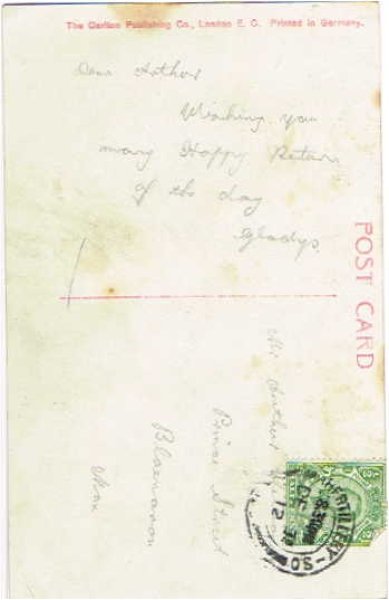 The Carlton Publishing Co., London E. C. Printed in Germany.
Dear Arthur
Wishing you
many Happy Return
of the day
Gladys.
POST CARD
Mr Arthur
Prince Street
Blaenavon
Mon
ABERTILLERY-S.O
DE
12